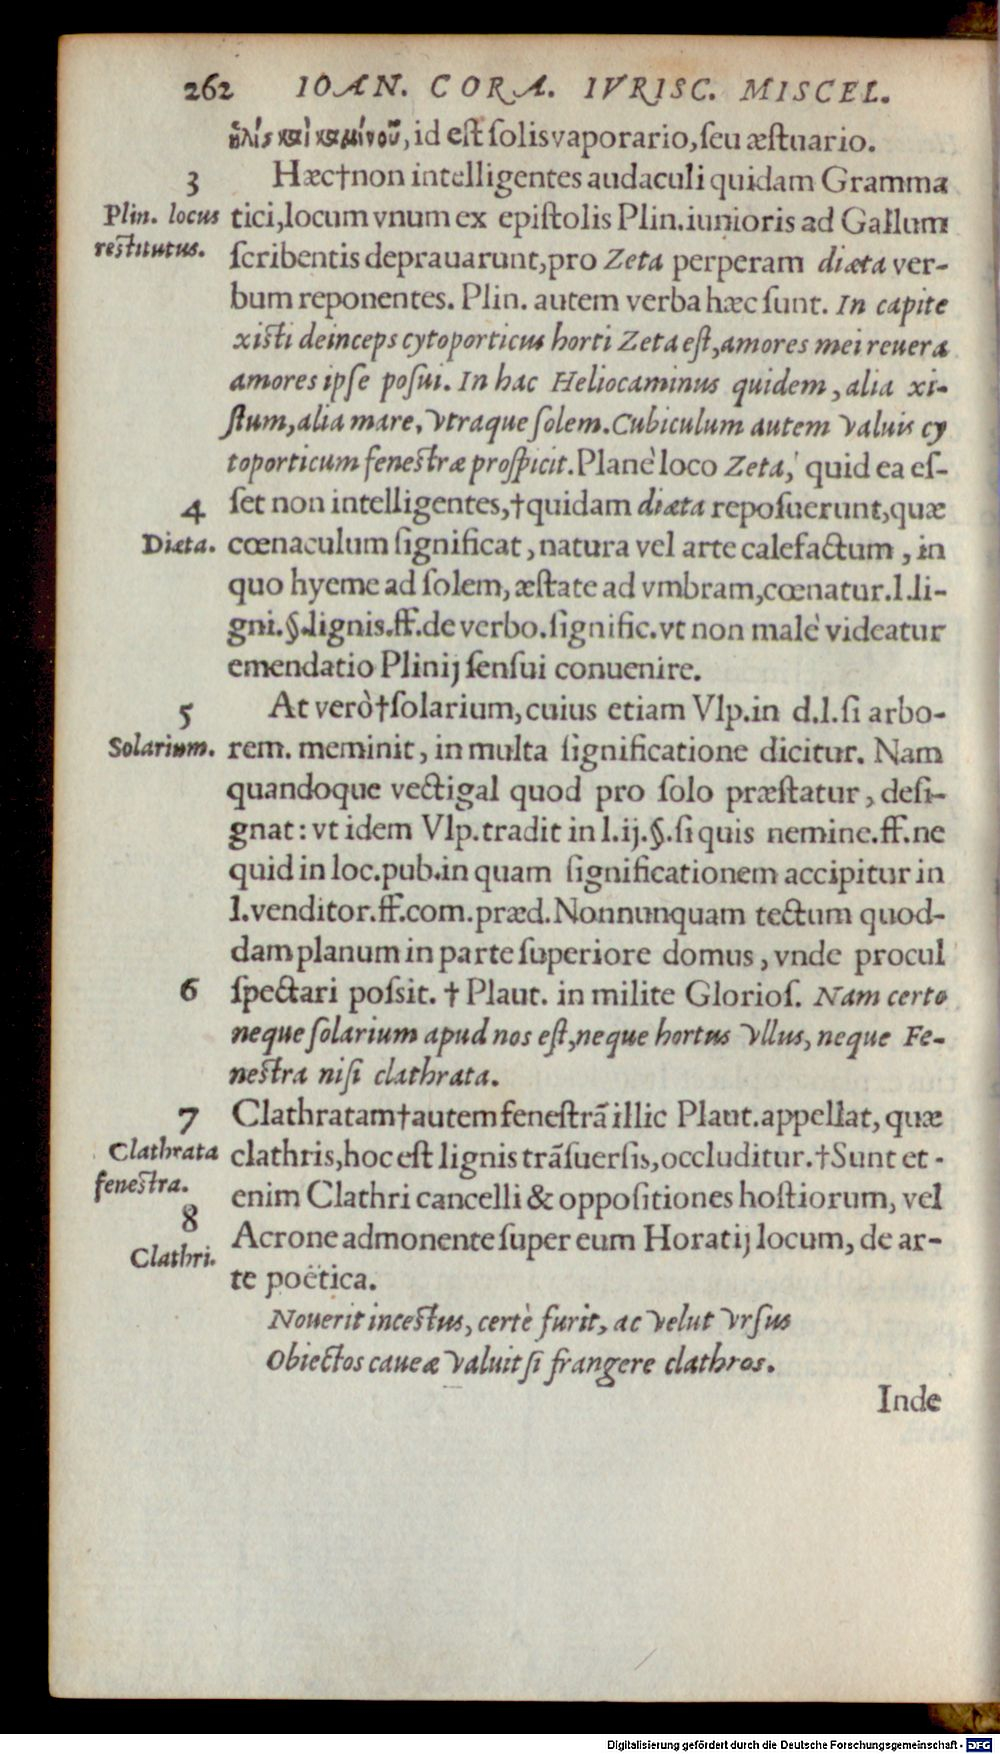 262 IOAN. CORA. IVRISC. MISCEL.
ἡλίς καὶ καμίνου, id eſt ſolis vaporario, ſeu æſtuario.
3 Hæc†non intelligentes audaculi quidam Gramma
Plin. locus tici, locum vnum ex epiſtolis Plin. iunioris ad Gallum
reſtitutus. ſcribentis deprauarunt, pro Zeta perperam diæta ver-
bum reponentes. Plin. autem verba hæc ſunt. In capite
xiſti deinceps cytoporticus horti Zeta eſt, amores mei reuera
amores ipſe poſui. In hac Heliocaminus quidem, alia xi-
ſtum, alia mare, vtraque ſolem. Cubiculum autem valuis cy
toporticum feneſtræ proſpicit. Planè loco Zeta, quid ea eſ-
4 ſet non intelligentes, †quidam diæta repoſuerunt, quæ
Diæta. cœnaculum ſignificat, natura vel arte calefactum, in
quo hyeme ad ſolem, æſtate ad vmbram, cœnatur. l. li-
gni. §. lignis. ff. de verbo. ſignific. vt non malè videatur
emendatio Plinij ſenſui conuenire.
5 At verò†ſolarium, cuius etiam Vlp. in d. l. ſi arbo-
Solarium. rem. meminit, in multa ſignificatione dicitur. Nam
quandoque vectigal quod pro ſolo præſtatur, deſi-
gnat: vt idem Vlp. tradit in l. ij. §. ſi quis nemine. ff. ne
quid in loc. pub. in quam ſignificationem accipitur in
l. venditor. ff. com. præd. Nonnunquam tectum quod-
dam planum in parte ſuperiore domus, vnde procul
6 ſpectari poſsit. † Plaut. in milite Glorioſ. Nam certo
neque ſolarium apud nos eſt, neque hortus vllus, neque Fe-
neſtra niſi clathrata.
7 Clathratam†autem feneſtrã illic Plaut. appellat, quæ
Clathrata clathris, hoc eſt lignis trãſuerſis, occluditur. †Sunt et-
feneſtra. enim Clathri cancelli & oppoſitiones hoſtiorum, vel
8 Acrone admonente ſuper eum Horatij locum, de ar-
Clathri. te poëtica.
Nouerit inceſtus, certè furit, ac velut vrſus
Obiectos caueæ valuit ſi frangere clathros.
Inde
Digitalisierung gefördert durch die Deutsche Forschungsgemeinschaft - DFG